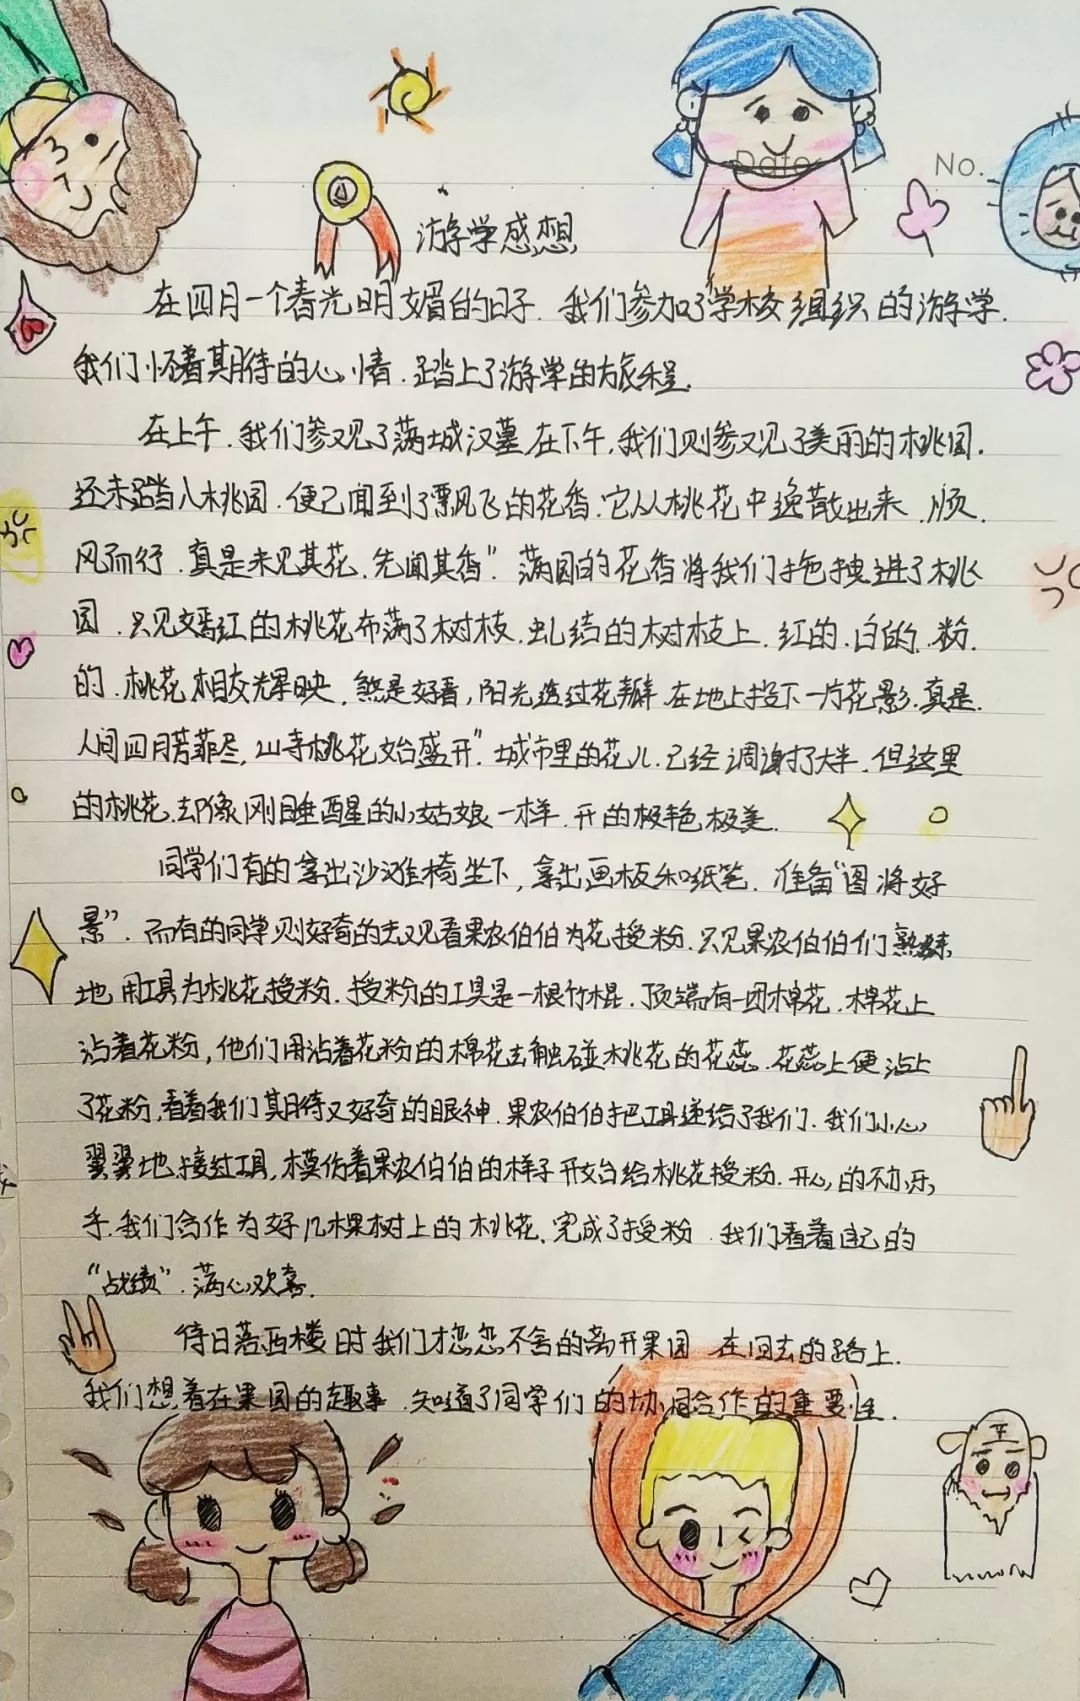 Date
No.
游学感想
在四月一个春光明媚的日子.我们参加了学校组织的游学.
我们怀着期待的心情.踏上了游学的旅程.
在上午.我们参观了满城汉墓.在下午,我们则参观了美丽的桃园.
还未踏入桃园.便已闻到了飘飞的花香.它从桃花中逸散出来.顺.
风而行.真是未见其花.先闻其香”.满园的花香将我们拖拽进了桃
园.只见嫣红的桃花布满了树枝.虬结的树枝上.红的.白的.粉.
的.桃花相交辉映.煞是好看,阳光透过花瓣.在地上投下一片花影.真是.
人间四月芳菲尽,山寺桃花始盛开”.城市里的花儿.已经调谢了大半.但这里
的桃花.却像刚睡醒的小姑娘一样.开的极艳极美.
同学们有的拿出沙滩椅坐下,拿出画板和纸笔.准备“图将好
景”.而有的同学则好奇的去观看果农伯伯为花授粉.只见果农伯伯们熟练
地用工具为桃花授粉.授粉的工具是一根竹棍.顶端有一团棉花.棉花上
沾着花粉,他们用沾着花粉的棉花去触碰桃花的花蕊.花蕊上便沾上
了花粉.看着我们期待又好奇的眼神.果农伯伯把工具递给了我们.我们小心
翼翼地接过工具,模仿着果农伯伯的样子开始给桃花授粉.开心的不亦乐
乎.我们合作为好几棵树上的桃花.完成了授粉.我们看着自己的
“战绩”.满心欢喜.
待日落西楼时我们才恋恋不舍的离开果园.在回去的路上.
我们想着在果园的趣事.知道了同学们的协同合作的重要性.